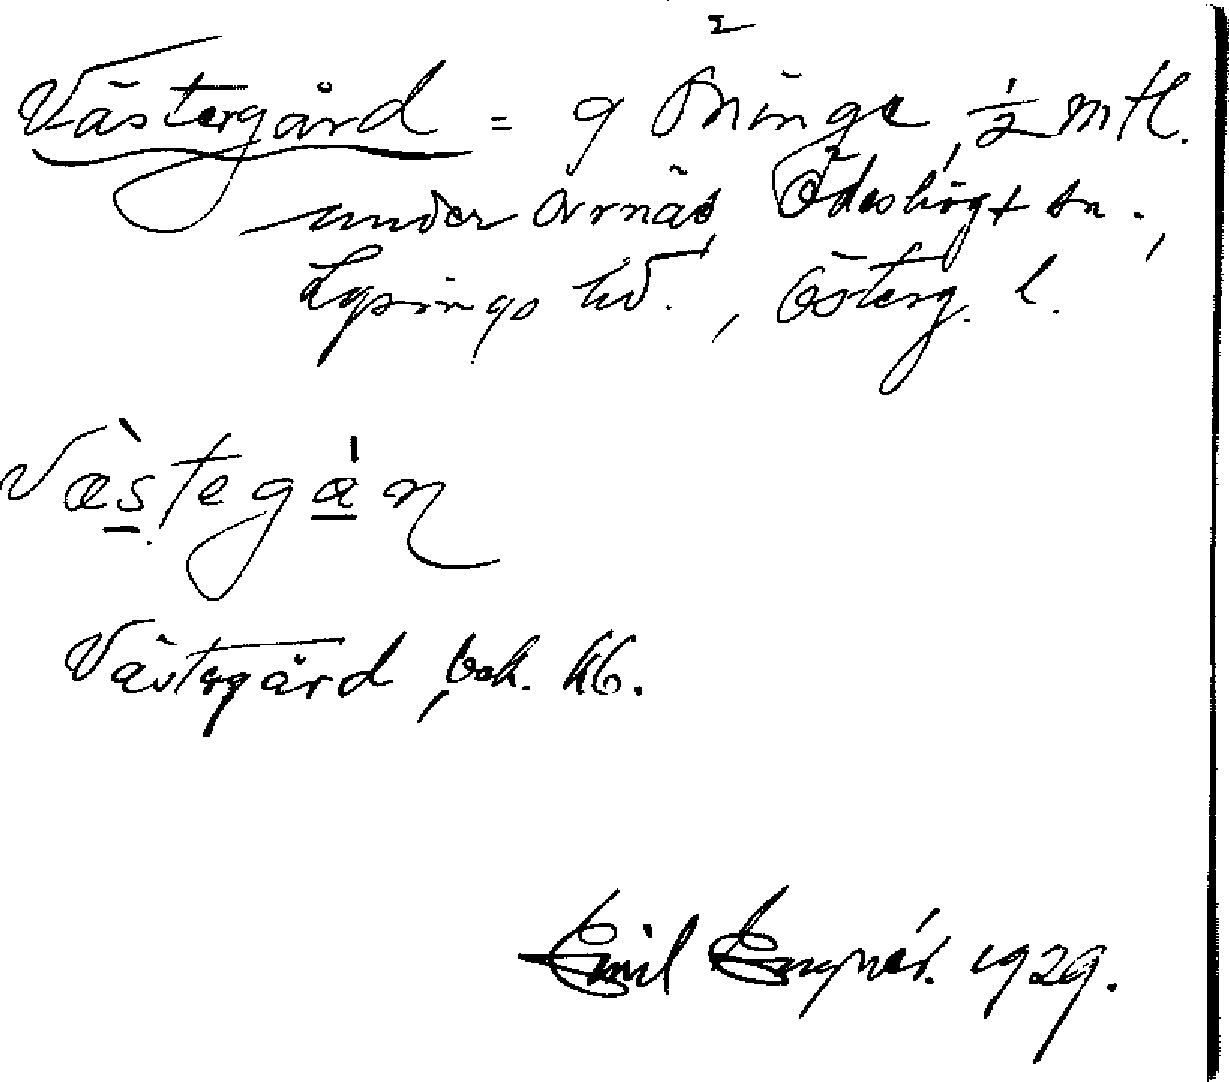 2
Västergård = 9 Minge, 1/2 mtl.
under Orrnäs, Ödeshögs sn.,
Lysings hd., Österg. l.
Vàstegán
Västergård, bok. kb.
Emil Engnér. 1929.